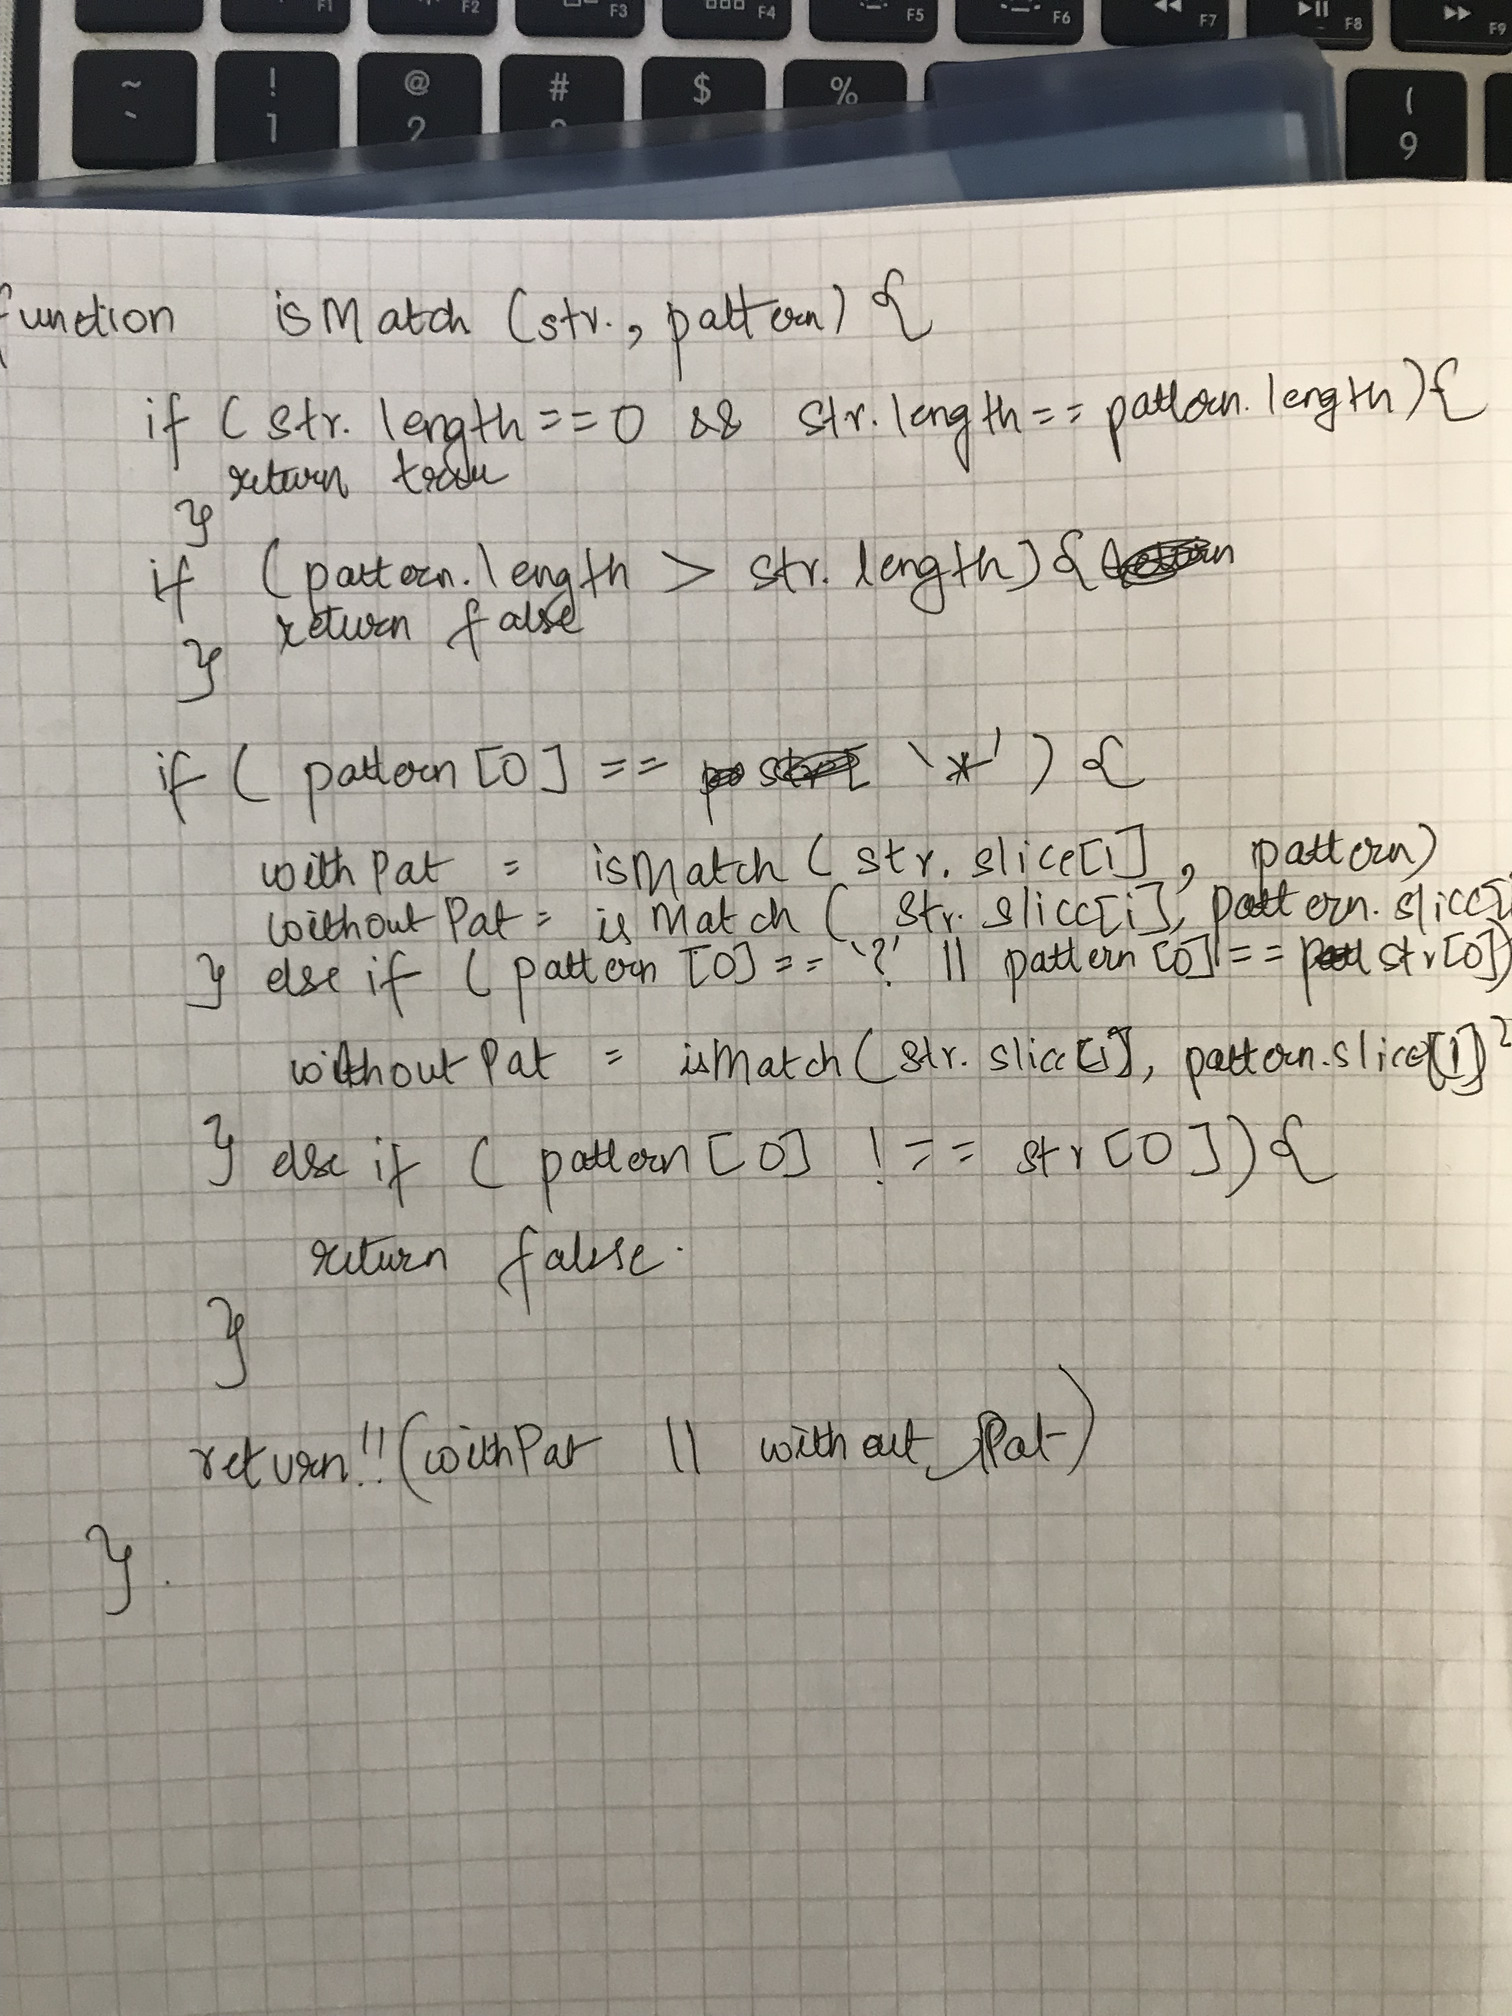 F1 F2 F3 F4 F5 F6 F7 F8 F9
~ ! @ # $ % (
` 1 2 9
function isMatch (str., pattern) {
if ( str. length == 0 && str. length == pattern. length ) {
return true
}
if ( pattern. length > str. length ) {
return false
}
if ( pattern [0] == '*' ) {
with Pat = isMatch ( str. slice[1] , pattern)
without Pat = is Match ( str. slice[1], pattern. slice[1
} else if ( pattern [0] == '?' || pattern [0] == str[0])
without Pat = isMatch ( str. slice[1], pattern.slice[1])
} else if ( pattern [0] !== str [0] ) {
return false.
}
return !! (withPat || without Pat)
}.